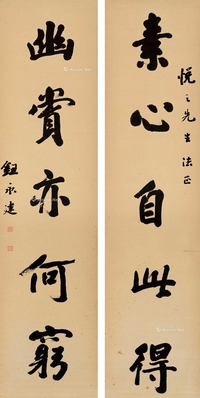 悦之先生法正
素心自此得
幽賞亦何窮
鈕永建